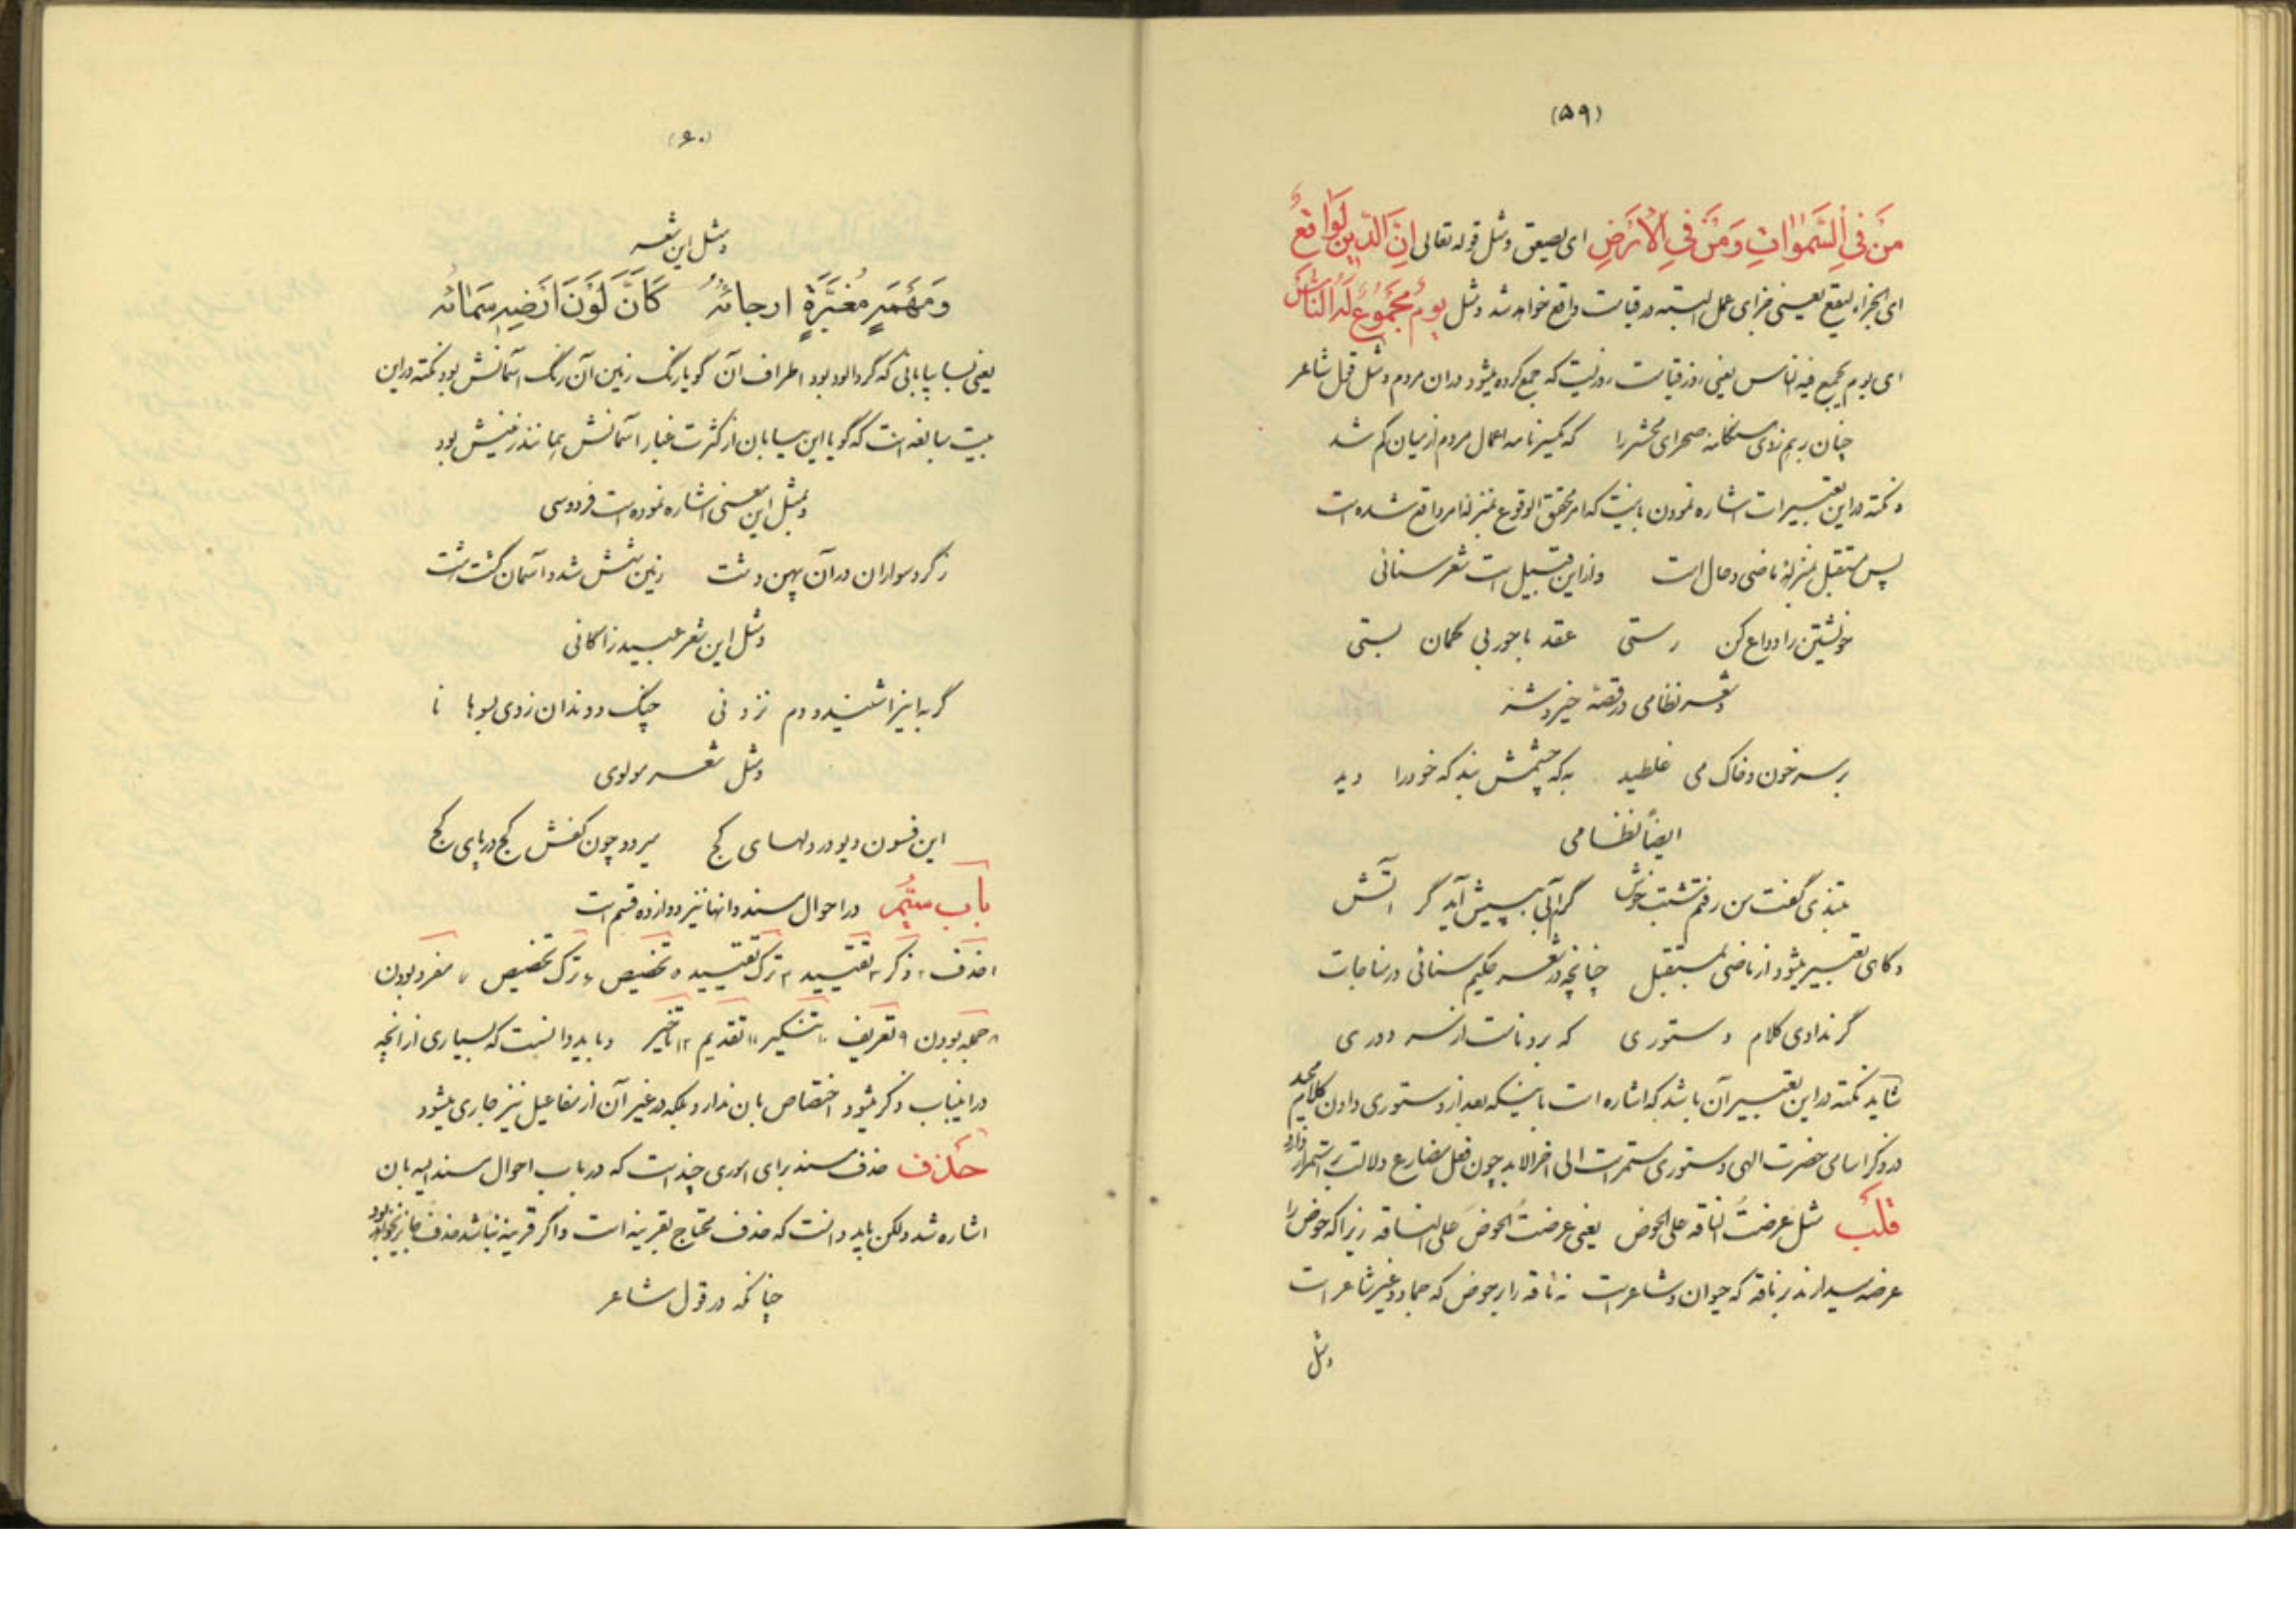 (۵۹)
مَن فِی السَّمٰوَاتِ وَمَن فِی الْاَرْضِ ای یصعق ومثل قوله تعالی اِنَّ الدّینَ لَوَاقِعٌ
ای الجزاء لیقع یعنی جزای عمل البته در قیامت واقع خواهد شد ومثل یومٌ مجموعٌ لهُ النّاس
ای یوم یجمع فیه الناس یعنی روز قیامت روزیست که جمع کرده میشود در ان مردم ومثل قول شاعر
چنان برهم زدی هنگامه صحرای محشر را که یکسر نامه اعمال مردم از میان گم شد
و نکته در این تعبیرات اشاره نمودن باینست که امر محقق الوقوع بمنزله امر واقع شده است
پس مستقبل بمنزله ماضی و حال است و از این قبیل است شعر سنائی
خویشتن را وداع کن رستی عقد با حور بی گمان بستی
وشعر نظامی در قصه خیر و شر
بر سر خون و خاک می غلطید به که چشمش نبد که خود را دید
ایضاً نظامی
بتندی گفت من رفتم شبت خوش گرم آبی به پیش آید گر اتش
و گاهی تعبیر میشود از ماضی بمستقبل چنانچه در شعر حکیم سنائی در مناجات
گر ندادی کلام دستوری که برد نامت از سر دوری
شاید نکته در این تعبیر آن باشد که اشاره است باینکه بعد از دستوری دادن کلام مجید
در ذکر اسامی حضرت الهی دستوری مستمر است الی اخر الابد چون فعل مضارع دلالت بر استمرار دارد
قلب مثل عرضتُ الناقه علی الحوض یعنی عرضتُ الحوضَ علی الناقه زیرا که حوض را
عرضه میدارند بر ناقه که حیوان و شاعر است نه ناقه را بر حوض که جماد و غیر شاعر است
ومثل
(۶۰)
ومثل این شعر
وَمَهْمَهٍ مُغْبَرَّةٍ ارجائُهُ کَاَنَّ لَوْنَ اَرْضِهِ سَمائُهُ
یعنی بسا بیابانی که گرد الود بود اطراف آن گویا رنگ زمین آن رنگ آسمانش بود نکته در این
بیت مبالغه است که گویا این بیابان از کثرت غبار اسمانش بمانند زمینش بود
وبمثل این معنی اشاره نموده است فردوسی
ز گرد سواران در آن پهن دشت زمین شش شد و آسمان گشت هشت
ومثل این شعر عبید زاکانی
گربه این را شنید و دم نزدنی چنگ و دندان زدی بسوهانا
ومثل شعر مولوی
این فسون دیو در دلهای کج میرود چون کفش کج در پای کج
باب سیّم در احوال مسند و انها نیز دوازده قسم است
۱ حذف ۲ ذکر ۳ تقیید ۴ ترک تقیید ۵ تخصیص ۶ ترک تخصیص ۷ مفرد بودن
۸ جمله بودن ۹ تعریف ۱۰ تنکیر ۱۱ تقدیم ۱۲ تأخیر و باید دانست که بسیاری از انچه
در اینباب ذکر میشود اختصاص بان ندارد بلکه در غیر آن از مفاعیل نیز جاری میشود
حذف حذف مسند برای اموری چند است که در باب احوال مسند الیه بان
اشاره شد ولکن باید دانست که حذف محتاج بقرینه است و اگر قرینه نباشد حذف جایز نخواهد بود
چنانکه در قول شاعر